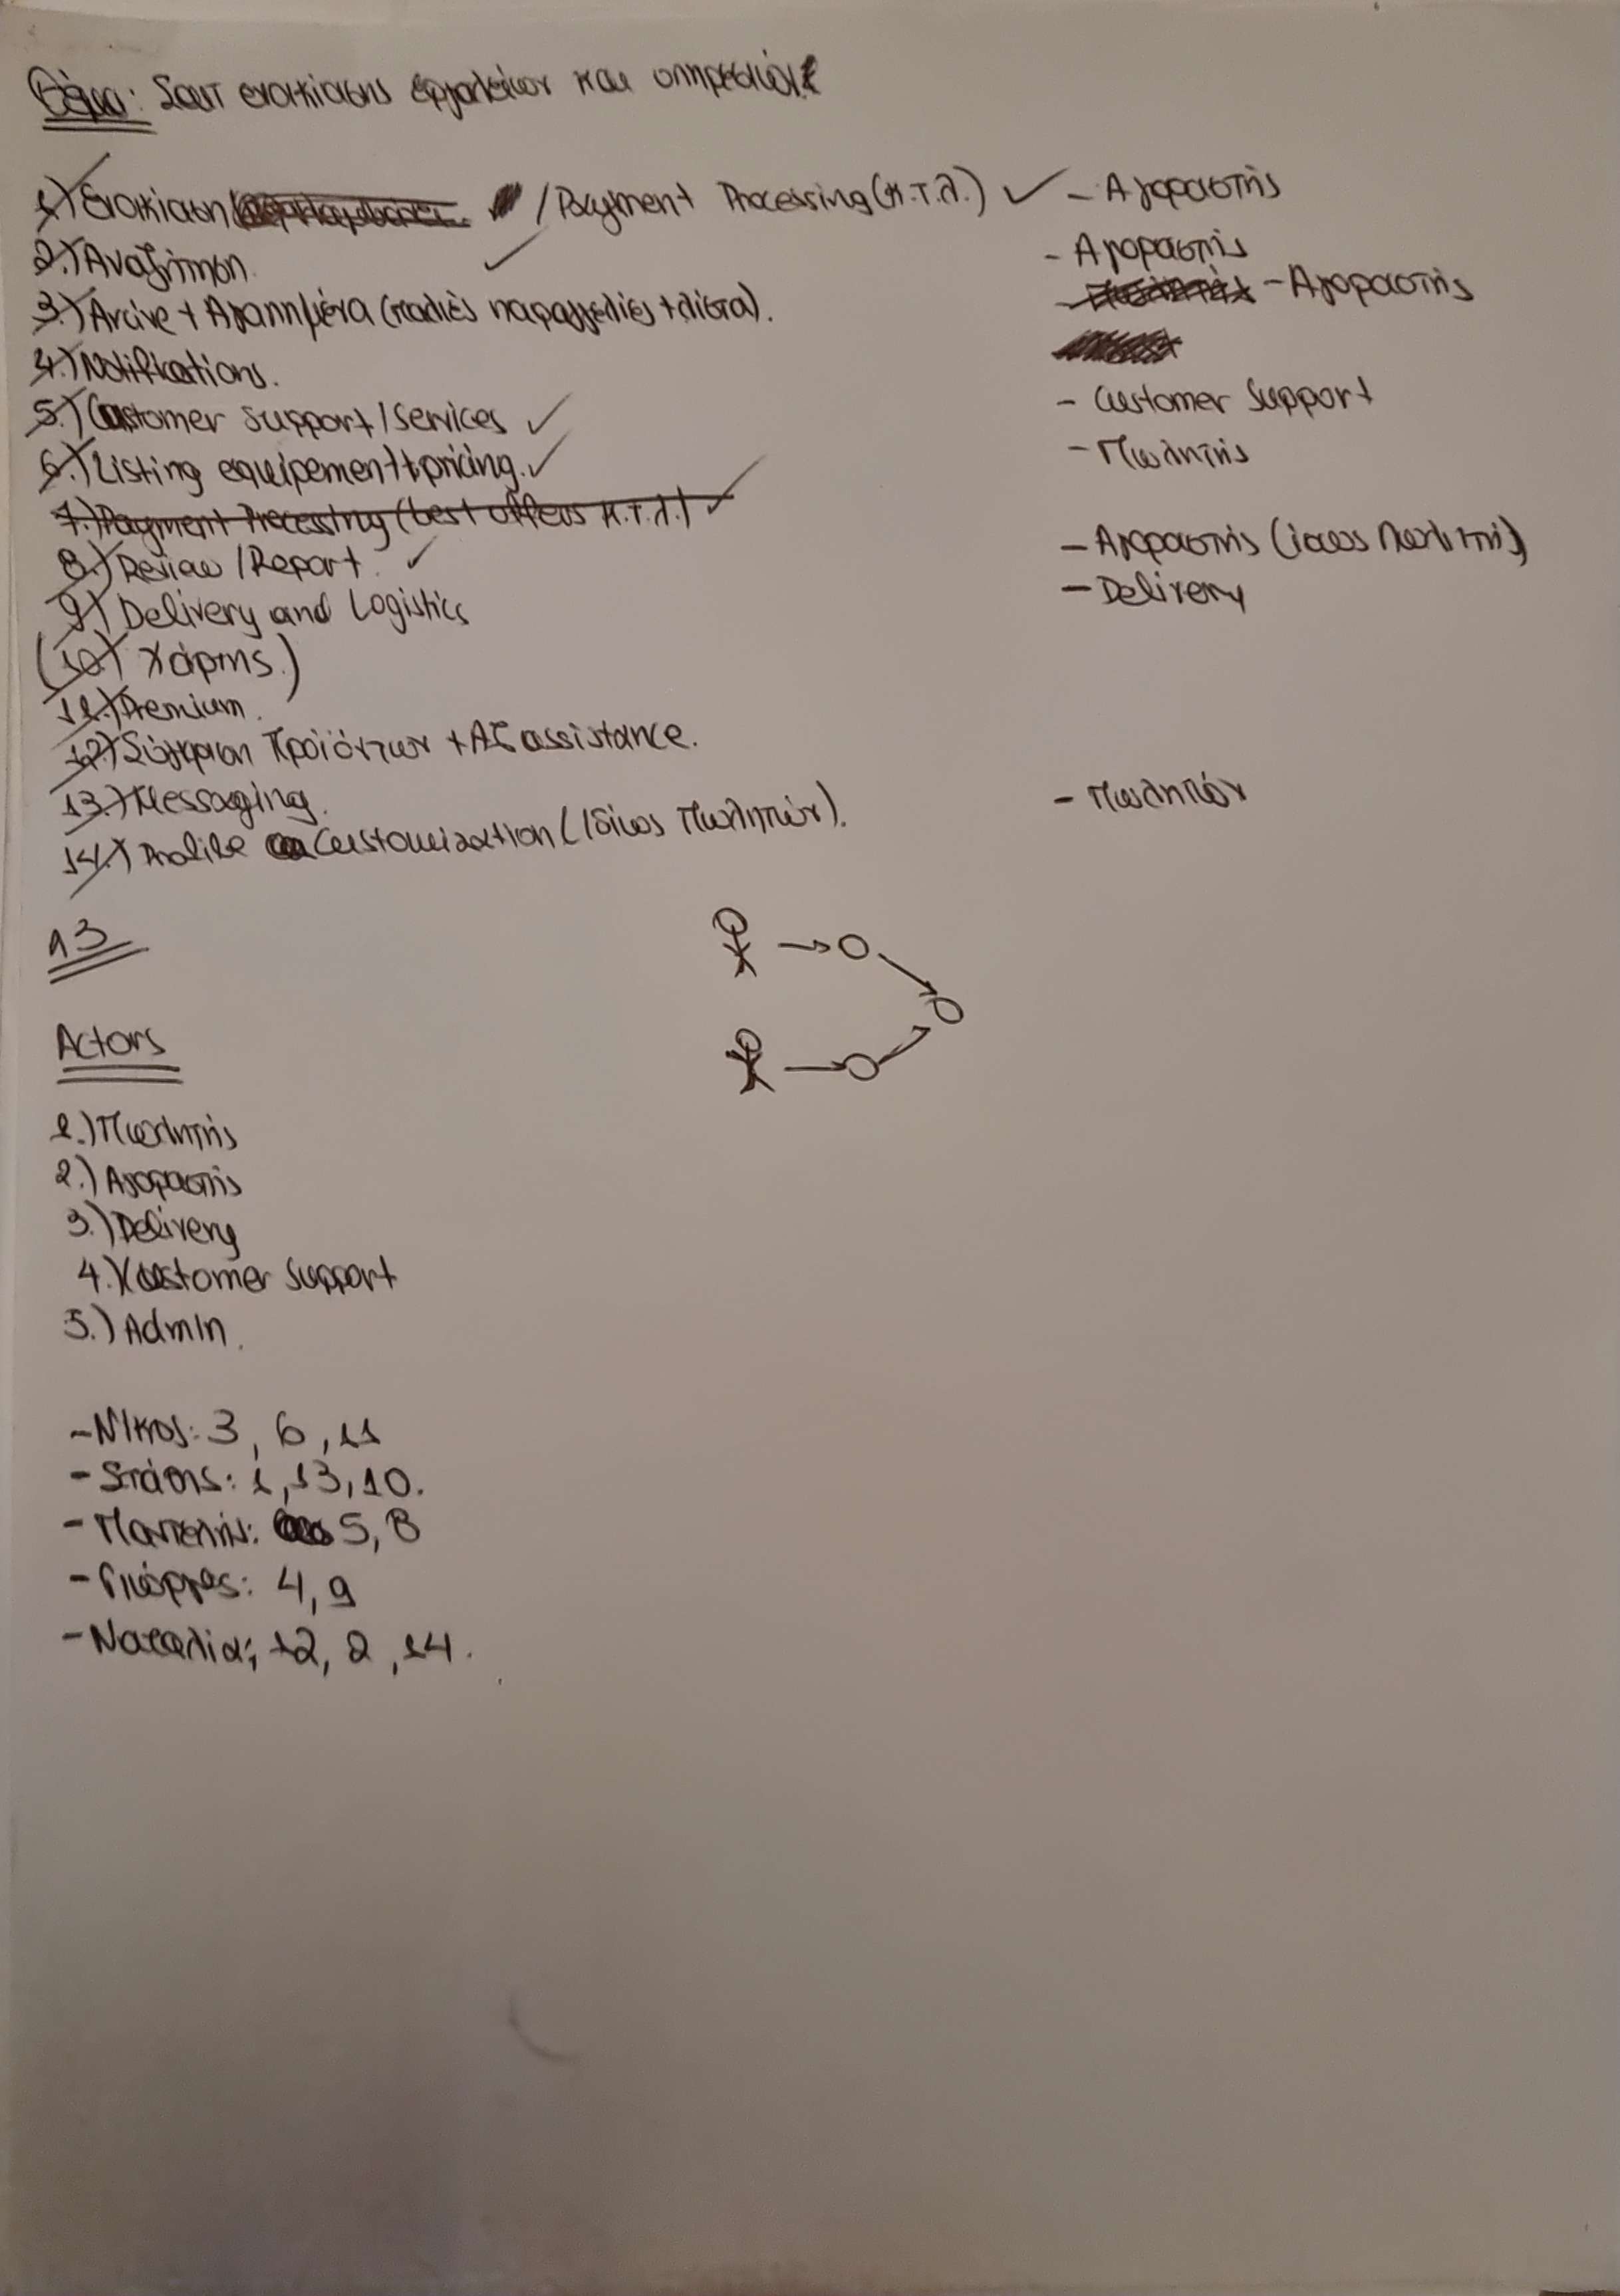 Θέμα: Σαιτ ενοικίασης εργαλείων και υπηρεσιών
1.) Ενοικίαση / Payment Processing (κ.τ.λ.) ✓ - Αγοραστής
2.) Αναζήτηση. ✓ - Αγοραστής
3.) Arcive + Αγαπημένα (παλιές παραγγελίες + λίστα). - Αγοραστής
4.) Notifications.
5.) Customer Support / Services ✓ - Customer Support
6.) Listing equipement + pricing. ✓ - Πωλητής
7.) Payment Processing (best offers κ.τ.λ.) ✓
8.) Review / Report. ✓ - Αγοραστής (ίσως Πωλητής)
9.) Delivery and Logistics - Delivery
(10.) Χάρτης.)
11.) Premium.
12.) Σύγκριση Προϊόντων + AI assistance.
13.) Messaging.
14.) Profile Customization (Ιδίως Πωλητών). - Πωλητών
13
Actors
1.) Πωλητής
2.) Αγοραστής
3.) Delivery
4.) Customer Support
5.) Admin.
- Νίκος: 3, 6, 11
- Στάθης: 1, 13, 10.
- Παντελής: 5, 8
- Γιώργος: 4, 9
- Ναταλία: 12, 2, 14.